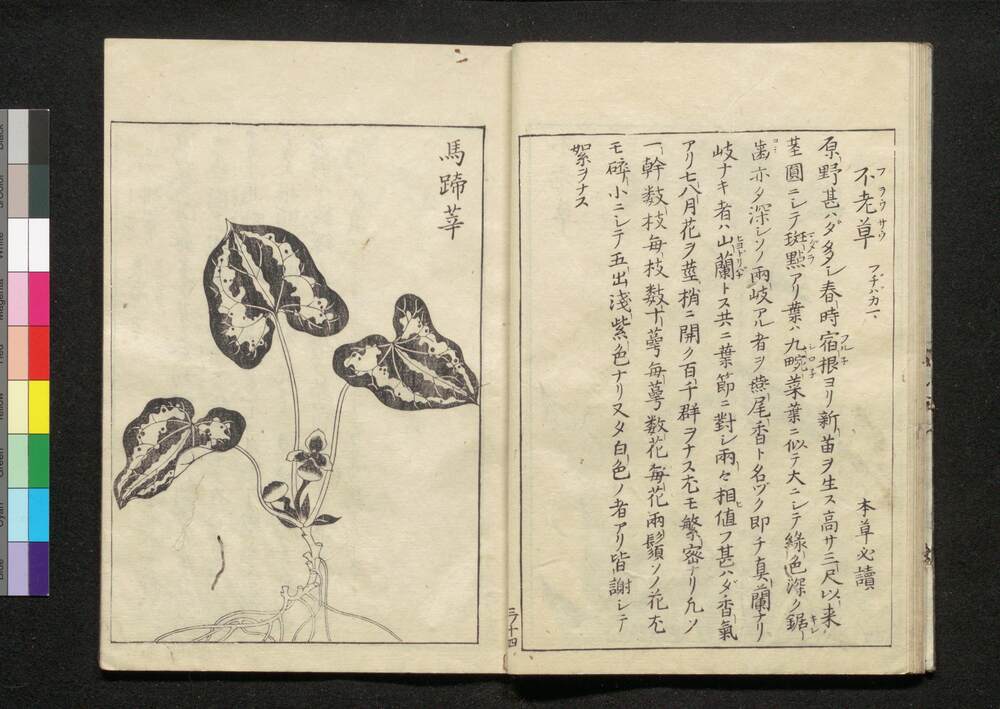 不老草 フヂバカマ 本草必讀
フラウサウ
原野甚ハダ多シ春時宿根ヨリ新苗ヲ生ス高サ三尺以来
フル子
莖圓ニシテ斑點アリ葉ハ九畹菜葉ニ似テ大ニシテ綠色深ク鋸
マダラ
歯亦タ深シソノ兩岐アル者ヲ燕尾香ト名ヅク即チ真蘭ナリ
岐ナキ者ハ山蘭トス共ニ葉節ニ對シ兩々相値フ甚ハダ香氣
アリ七八月花ヲ莖梢ニ開ク百千群ヲナス尤モ繁密ナリ凡ソ
一幹数枝毎枝数十萼毎萼数花毎花兩鬚ソノ花尤
モ碎小ニシテ五出淺紫色ナリ又タ白色ノ者アリ皆謝シテ
絮ヲナス
三ノ十四
馬蹄莘